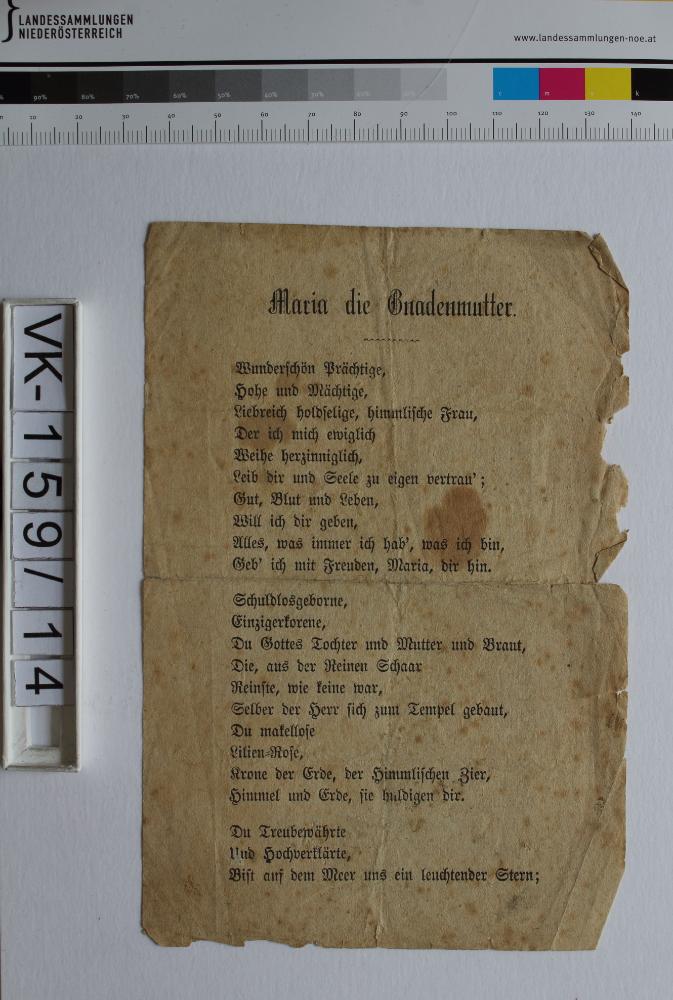 LANDESSAMMLUNGEN
NIEDERÖSTERREICH
www.landessammlungen-noe.at
90% 80% 70% 60% 50% 40% 30% 20% 10% c m y k
0 10 20 30 40 50 60 70 80 90 100 110 120 130 140
VK-159/14
Maria die Gnadenmutter.
Wunderschön Prächtige,
Hohe und Mächtige,
Liebreich holdselige, himmlische Frau,
Der ich mich ewiglich
Weihe herzinniglich,
Leib dir und Seele zu eigen vertrau';
Gut, Blut und Leben,
Will ich dir geben,
Alles, was immer ich hab', was ich bin,
Geb' ich mit Freuden, Maria, dir hin.
Schuldlosgeborne,
Einzigerkorene,
Du Gottes Tochter und Mutter und Braut,
Die, aus der Reinen Schaar
Reinste, wie keine war,
Selber der Herr sich zum Tempel gebaut,
Du makellose
Lilien-Rose,
Krone der Erde, der Himmlischen Zier,
Himmel und Erde, sie huldigen dir.
Du Treubewährte
Und Hochverklärte,
Bist auf dem Meer uns ein leuchtender Stern;